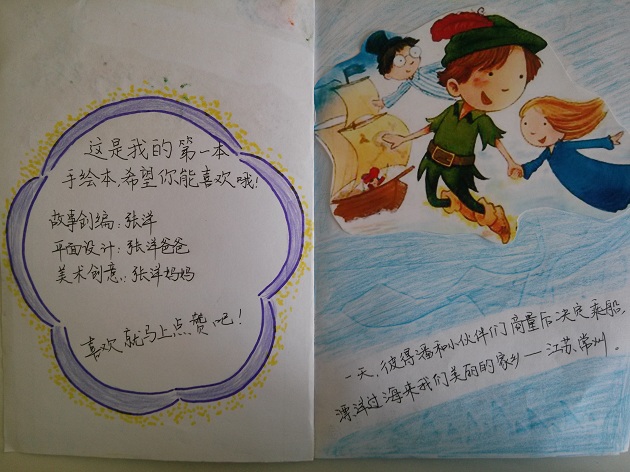 这是我的第一本
手绘本，希望你能喜欢哦！
故事创编：张洋
平面设计：张洋爸爸
美术创意：张洋妈妈
喜欢就马上点赞吧！
一天，彼得潘和小伙伴们商量后决定乘船，
漂洋过海来我们美丽的家乡——江苏、常州。